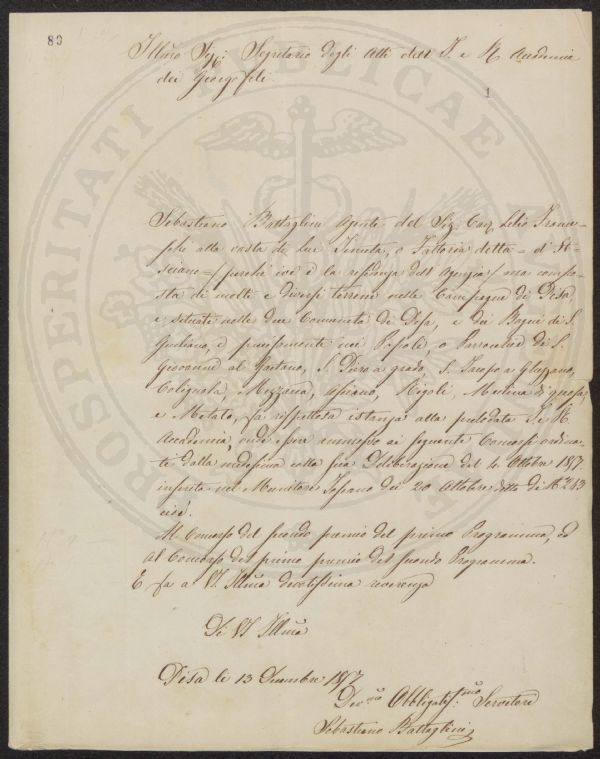 89
Illmo Sigr. Segretario degli Atti dell' I. e R. Accademia
dei Georgofili
1
Sebastiano Battaglini Agente del Sig. Cav. Lelio France-
schi alla vasta di Lui Tenuta, o Fattoria detta = d'As-
ciano = (perchè ivi è la residenza dell'Agenzia) ma compo-
sta di molti e diversi terreni nelle Campagne di Pisa,
e situate nelle due Comunità di Pisa, e dei Bagni di S.
Giuliano, e precisamente nei Popoli, o Parrocchie di S.
Giovanni al Gaetano, S. Piero a grado, S. Jacopo a
Colignola, Mezzana, Asciano, Rigoli, Mulina di quosa,
e Metato, fa rispettosa istanza alla prelodata I. e R.
Accademia, onde essere ammesso ai seguenti Concorsi ordina-
ti dalla medesima colla sua Deliberazione del 4. Ottobre 1857.
inserita nel Monitore Toscano dei 20 Ottobre detto di N.° 243
cioè.
Al Concorso del secondo premio del primo Programma, ed
al Concorso del primo premio del secondo Programma.
E fa a VS. Illma devotissima reverenza
Di VS Illma
Pisa li 13 Dicembre 1857
Devmo Obbligatissmo Servitore
Sebastiano Battaglini
PROSPERITATI PUBLICAE